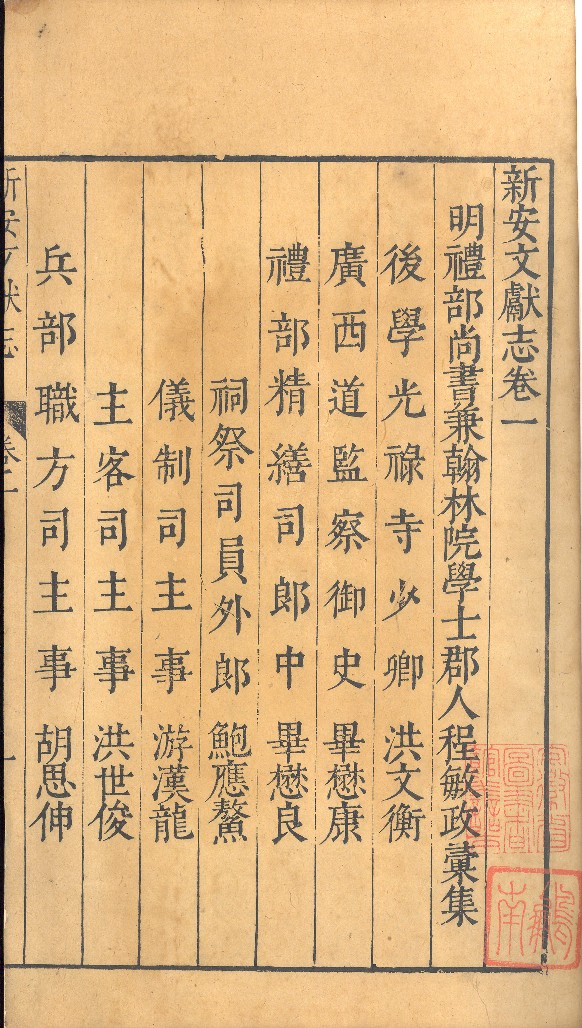 新安文獻志卷一
明禮部尚書兼翰林院學士郡人程敏政彚集
後學光祿寺少卿洪文衡
廣西道監察御史畢懋康
禮部精繕司郎中畢懋良
祠祭司員外郎鮑應鰲
儀制司主事游漢龍
主客司主事洪世俊
兵部職方司主事胡思伸
新安文獻志
卷一
一